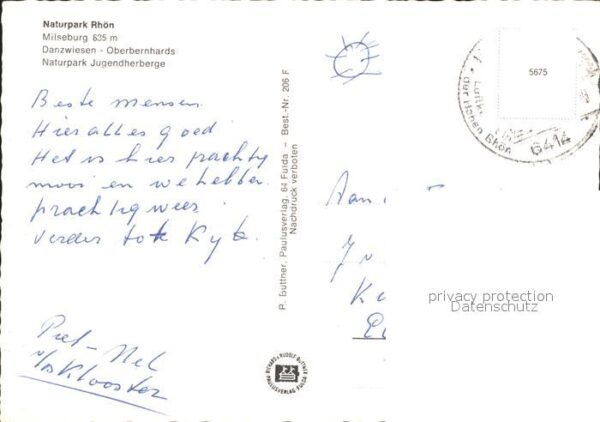 Naturpark Rhön
Milseburg 835 m
Danzwiesen - Oberbernhards
Naturpark Jugendherberge
Beste mensen
Hier alles goed
Het is hier prachtig
mooi en we hebben
prachtig weer
verder tot Kijk.
Piet - Nel
Klooster
R. Buttner, Paulusverlag, 64 Fulda — Best.-Nr. 206 F
Nachdruck verboten
RICHARD + RUDOLF BUTTNER
PAULUSVERLAG FULDA
5675
der Hohen Rhön
6414
Aan
privacy protection
Datenschutz